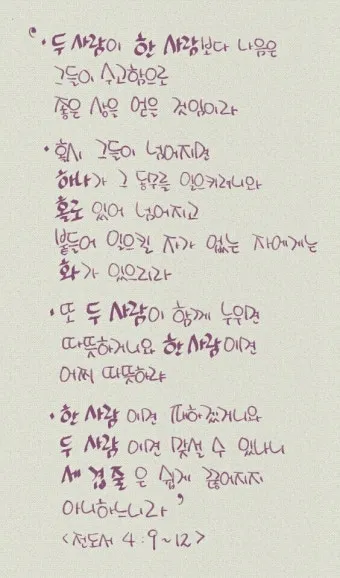 ‘· 두 사람이 한 사람보다 나음은
그들이 수고함으로
좋은 상을 얻을 것임이라
· 혹시 그들이 넘어지면
하나가 그 동무를 일으키려니와
홀로 있어 넘어지고
붙들어 일으킬 자가 없는 자에게는
화가 있으리라
· 또 두 사람이 함께 누우면
따뜻하거니와 한 사람이면
어찌 따뜻하랴
· 한 사람이면 패하겠거니와
두 사람이면 맞설 수 있나니
세 겹줄은 쉽게 끊어지지
아니하느니라’
<전도서 4:9~12>